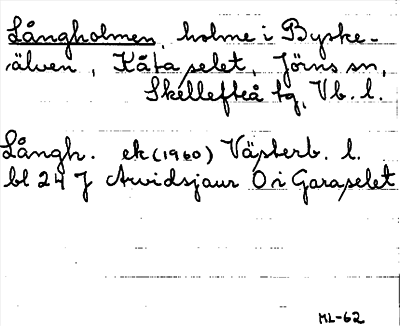 Långholmen, holme i Byske-
älven, Kåtaselet, Jörns sn,
Skellefteå tg, Vb. l.
Långh. ek (1960) Västerb. l.
bl 24 J Arvidsjaur O i Garaselet
ML-62